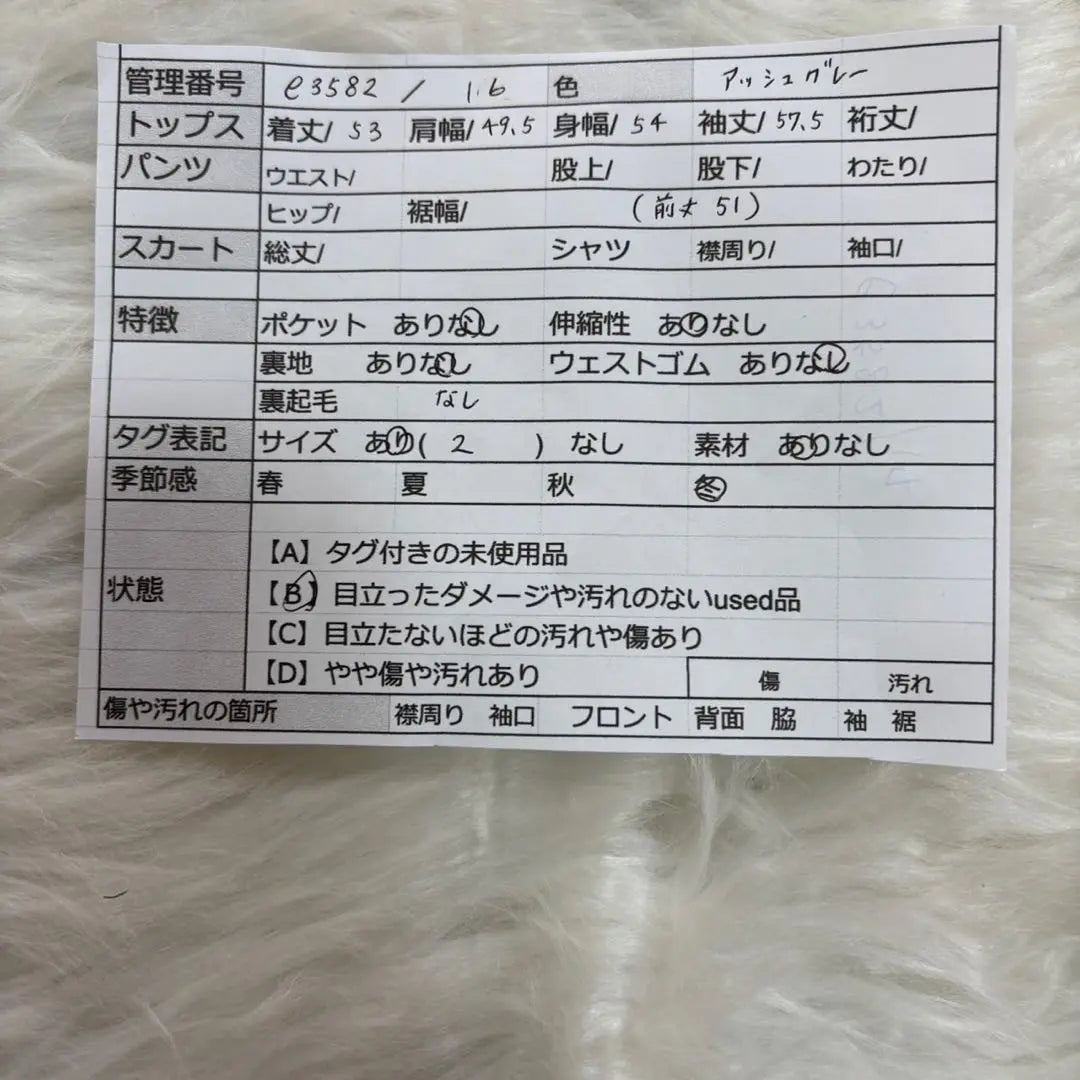 管理番号 e3582 / 1.6 色 アッシュグレー
トップス 着丈/ 53 肩幅/ 49.5 身幅/ 54 袖丈/ 57.5 裄丈/
パンツ ウエスト/ 股上/ 股下/ わたり/
ヒップ/ 裾幅/ (前丈 51)
スカート 総丈/ シャツ 襟周り/ 袖口/
特徴 ポケット ありなし 伸縮性 ありなし
裏地 ありなし ウェストゴム ありなし
裏起毛 なし
タグ表記 サイズ あり( 2 ) なし 素材 ありなし
季節感 春 夏 秋 冬
【A】タグ付きの未使用品
状態 【B】目立ったダメージや汚れのないused品
【C】目立たないほどの汚れや傷あり
【D】やや傷や汚れあり 傷 汚れ
傷や汚れの箇所 襟周り 袖口 フロント 背面 脇 袖 裾